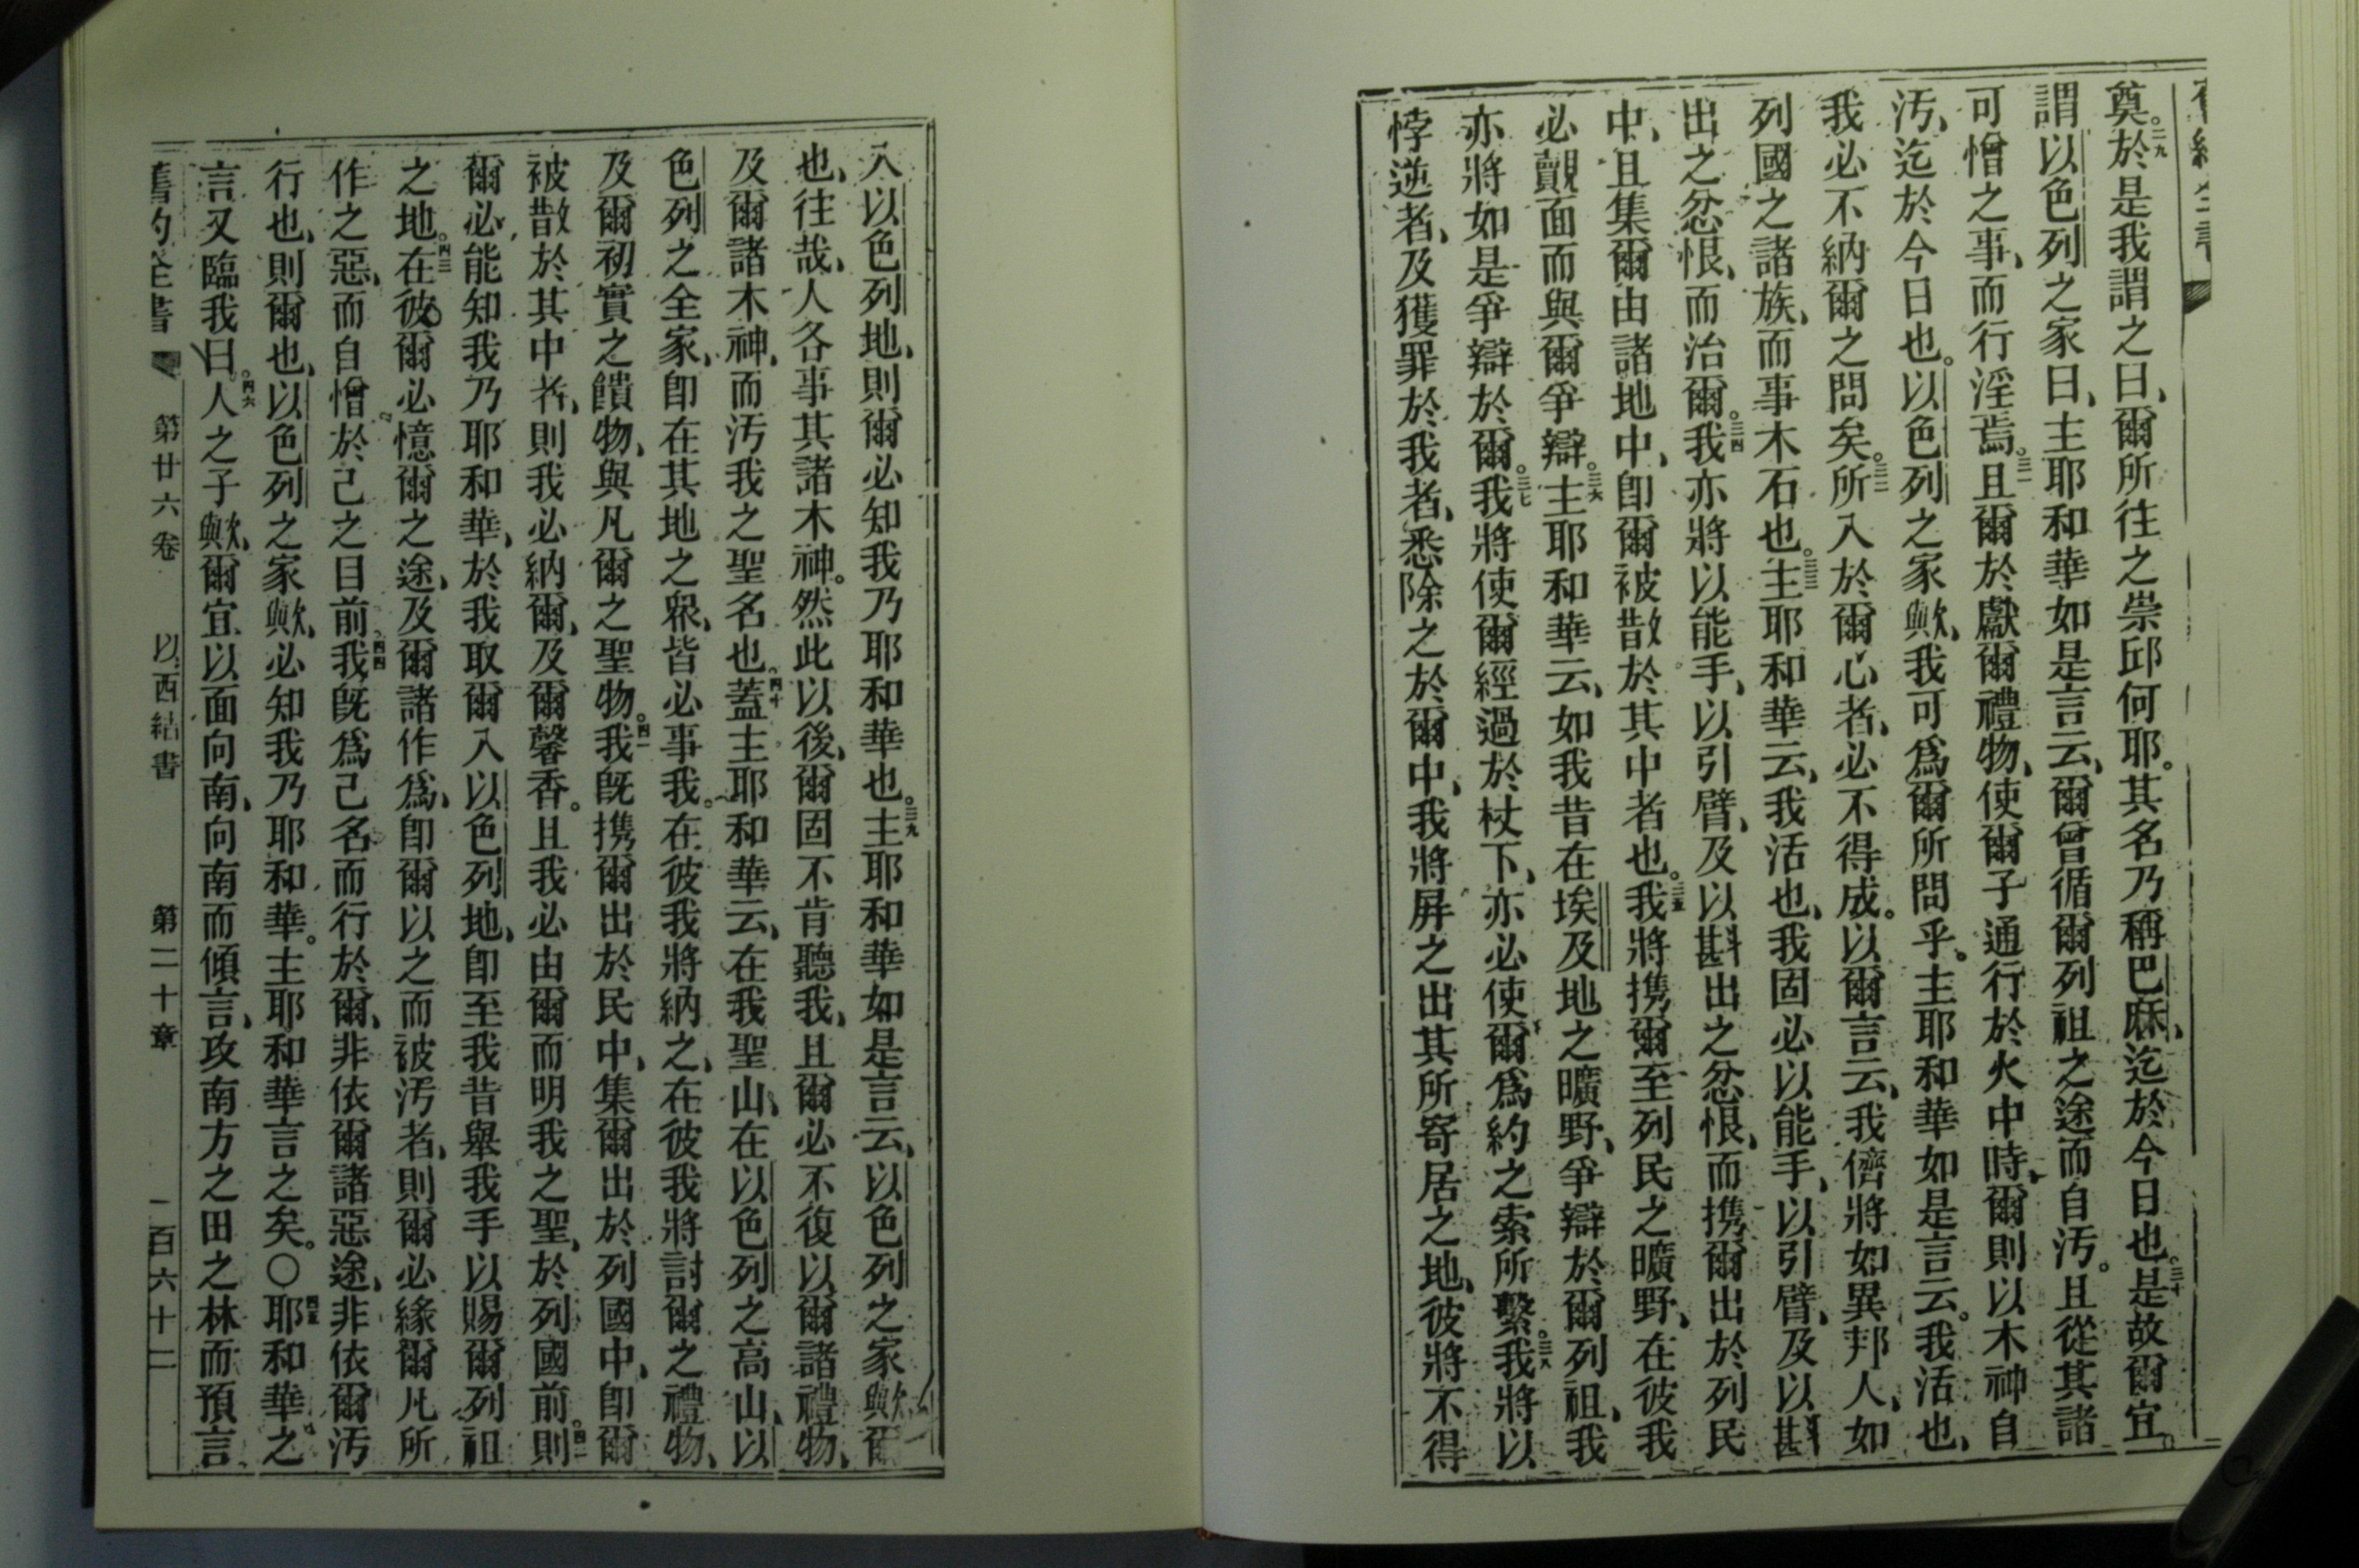 奠。二九於是我謂之曰、爾所往之崇邱何耶。其名乃稱巴麻、迄於今日也。三十是故爾宜
謂以色列之家曰、主耶和華如是言云、爾曾循爾列祖之途而自汚。且從其諸
可憎之事、而行淫焉。三一且爾於獻爾禮物、使爾子通行於火中時、爾則以木神自
汚、迄於今日也。以色列之家歟、我可爲爾所問乎。主耶和華如是言云。我活也、
我必不納爾之問矣。三二所入於爾心者、必不得成。以爾言云、我儕將如異邦人、如
列國之諸族、而事木石也。三三主耶和華云、我活也、我固必以能手、以引臂、及以斟
出之忿恨、而治爾。三四我亦將以能手、以引臂、及以斟出之忿恨、而携爾出於列民
中、且集爾由諸地中、卽爾被散於其中者也。三五我將携爾至列民之曠野、在彼我
必覿面而與爾爭辯。三六主耶和華云、如我昔在埃及地之曠野、爭辯於爾列祖、我
亦將如是爭辯於爾。三七我將使爾經過於杖下、亦必使爾爲約之索所繫。三八我將以
悖逆者、及獲罪於我者、悉除之於爾中、我將屏之出其所寄居之地、彼將不得
入以色列地、則爾必知我乃耶和華也。三九主耶和華如是言云、以色列之家歟爾
也、往哉、人各事其諸木神。然此以後、爾固不肯聽我、且爾必不復以爾諸禮物、
及爾諸木神、而汚我之聖名也。四十蓋主耶和華云、在我聖山、在以色列之高山、以
色列之全家、卽在其地之衆、皆必事我。在彼我將納之、在彼我將討爾之禮物、
及爾初實之饋物、與凡爾之聖物。四一我旣携爾出於民中、集爾出於列國中、卽爾
被散於其中者、則我必納爾、及爾馨香。且我必由爾而明我之聖、於列國前。四二則
爾必能知我乃耶和華、於我取爾入以色列地、卽至我昔舉我手以賜爾列祖
之地。四三在彼爾必憶爾之途、及爾諸作爲、卽爾以之而被汚者、則爾必緣爾凡所
作之惡、而自憎於己之目前。四四我旣爲己名而行於爾、非依爾諸惡途、非依爾汚
行也、則爾也、以色列之家歟、必知我乃耶和華。主耶和華言之矣。〇四五耶和華之
言又臨我曰。四六人之子歟、爾宜以面向南、向南而傾言、攻南方之田之林而預言
舊約全書 第廿六卷 以西結書 第二十章 一百六十二